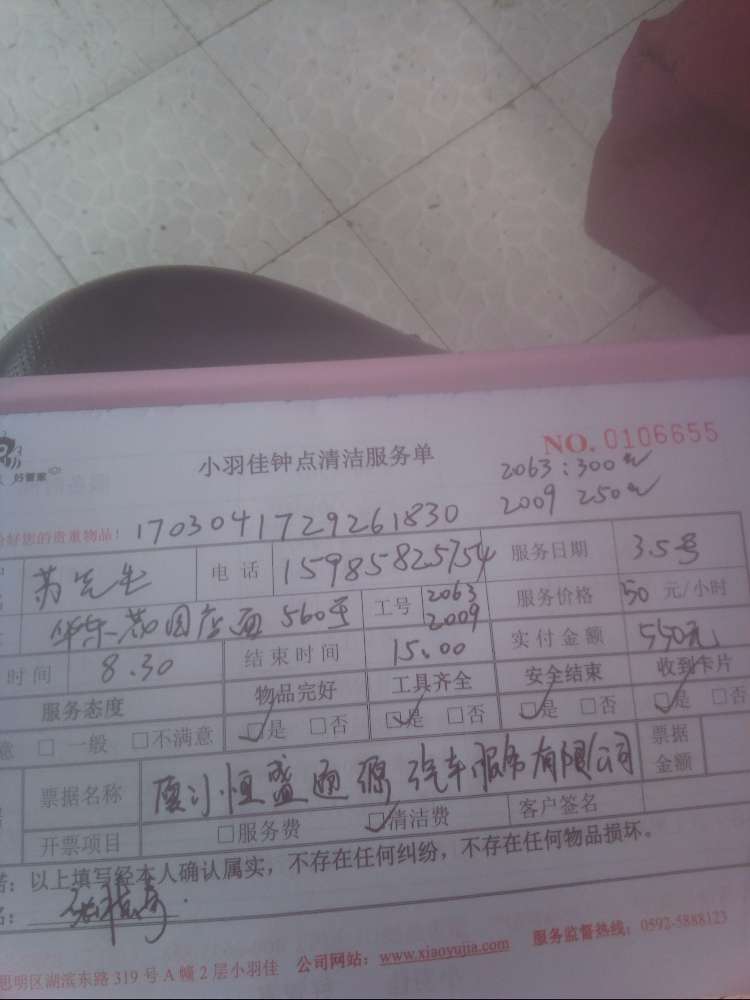 好管家
小羽佳钟点清洁服务单
NO. 0106655
2063:300元
2009 250元
好您的贵重物品! 1703041729261830
苏先生 电话 15985825754 服务日期 3.5号
园店面560号 工号 2063 2009 服务价格 50 元/小时
时间 8.30 结束时间 15.00 实付金额 550元
服务态度 物品完好 工具齐全 安全结束 收到卡片
意 □一般 □不满意 □是 □否 □是 □否 □是 □否 □是 □否
票据名称 厦门恒盛通源汽车服务有限公司 票据金额
开票项目 □服务费 □清洁费 客户签名
诺:以上填写经本人确认属实,不存在任何纠纷,不存在任何物品损坏。
名:
思明区湖滨东路319号A幢2层小羽佳 公司网站:www.xiaoyujia.com 服务监督热线:0592-5888123